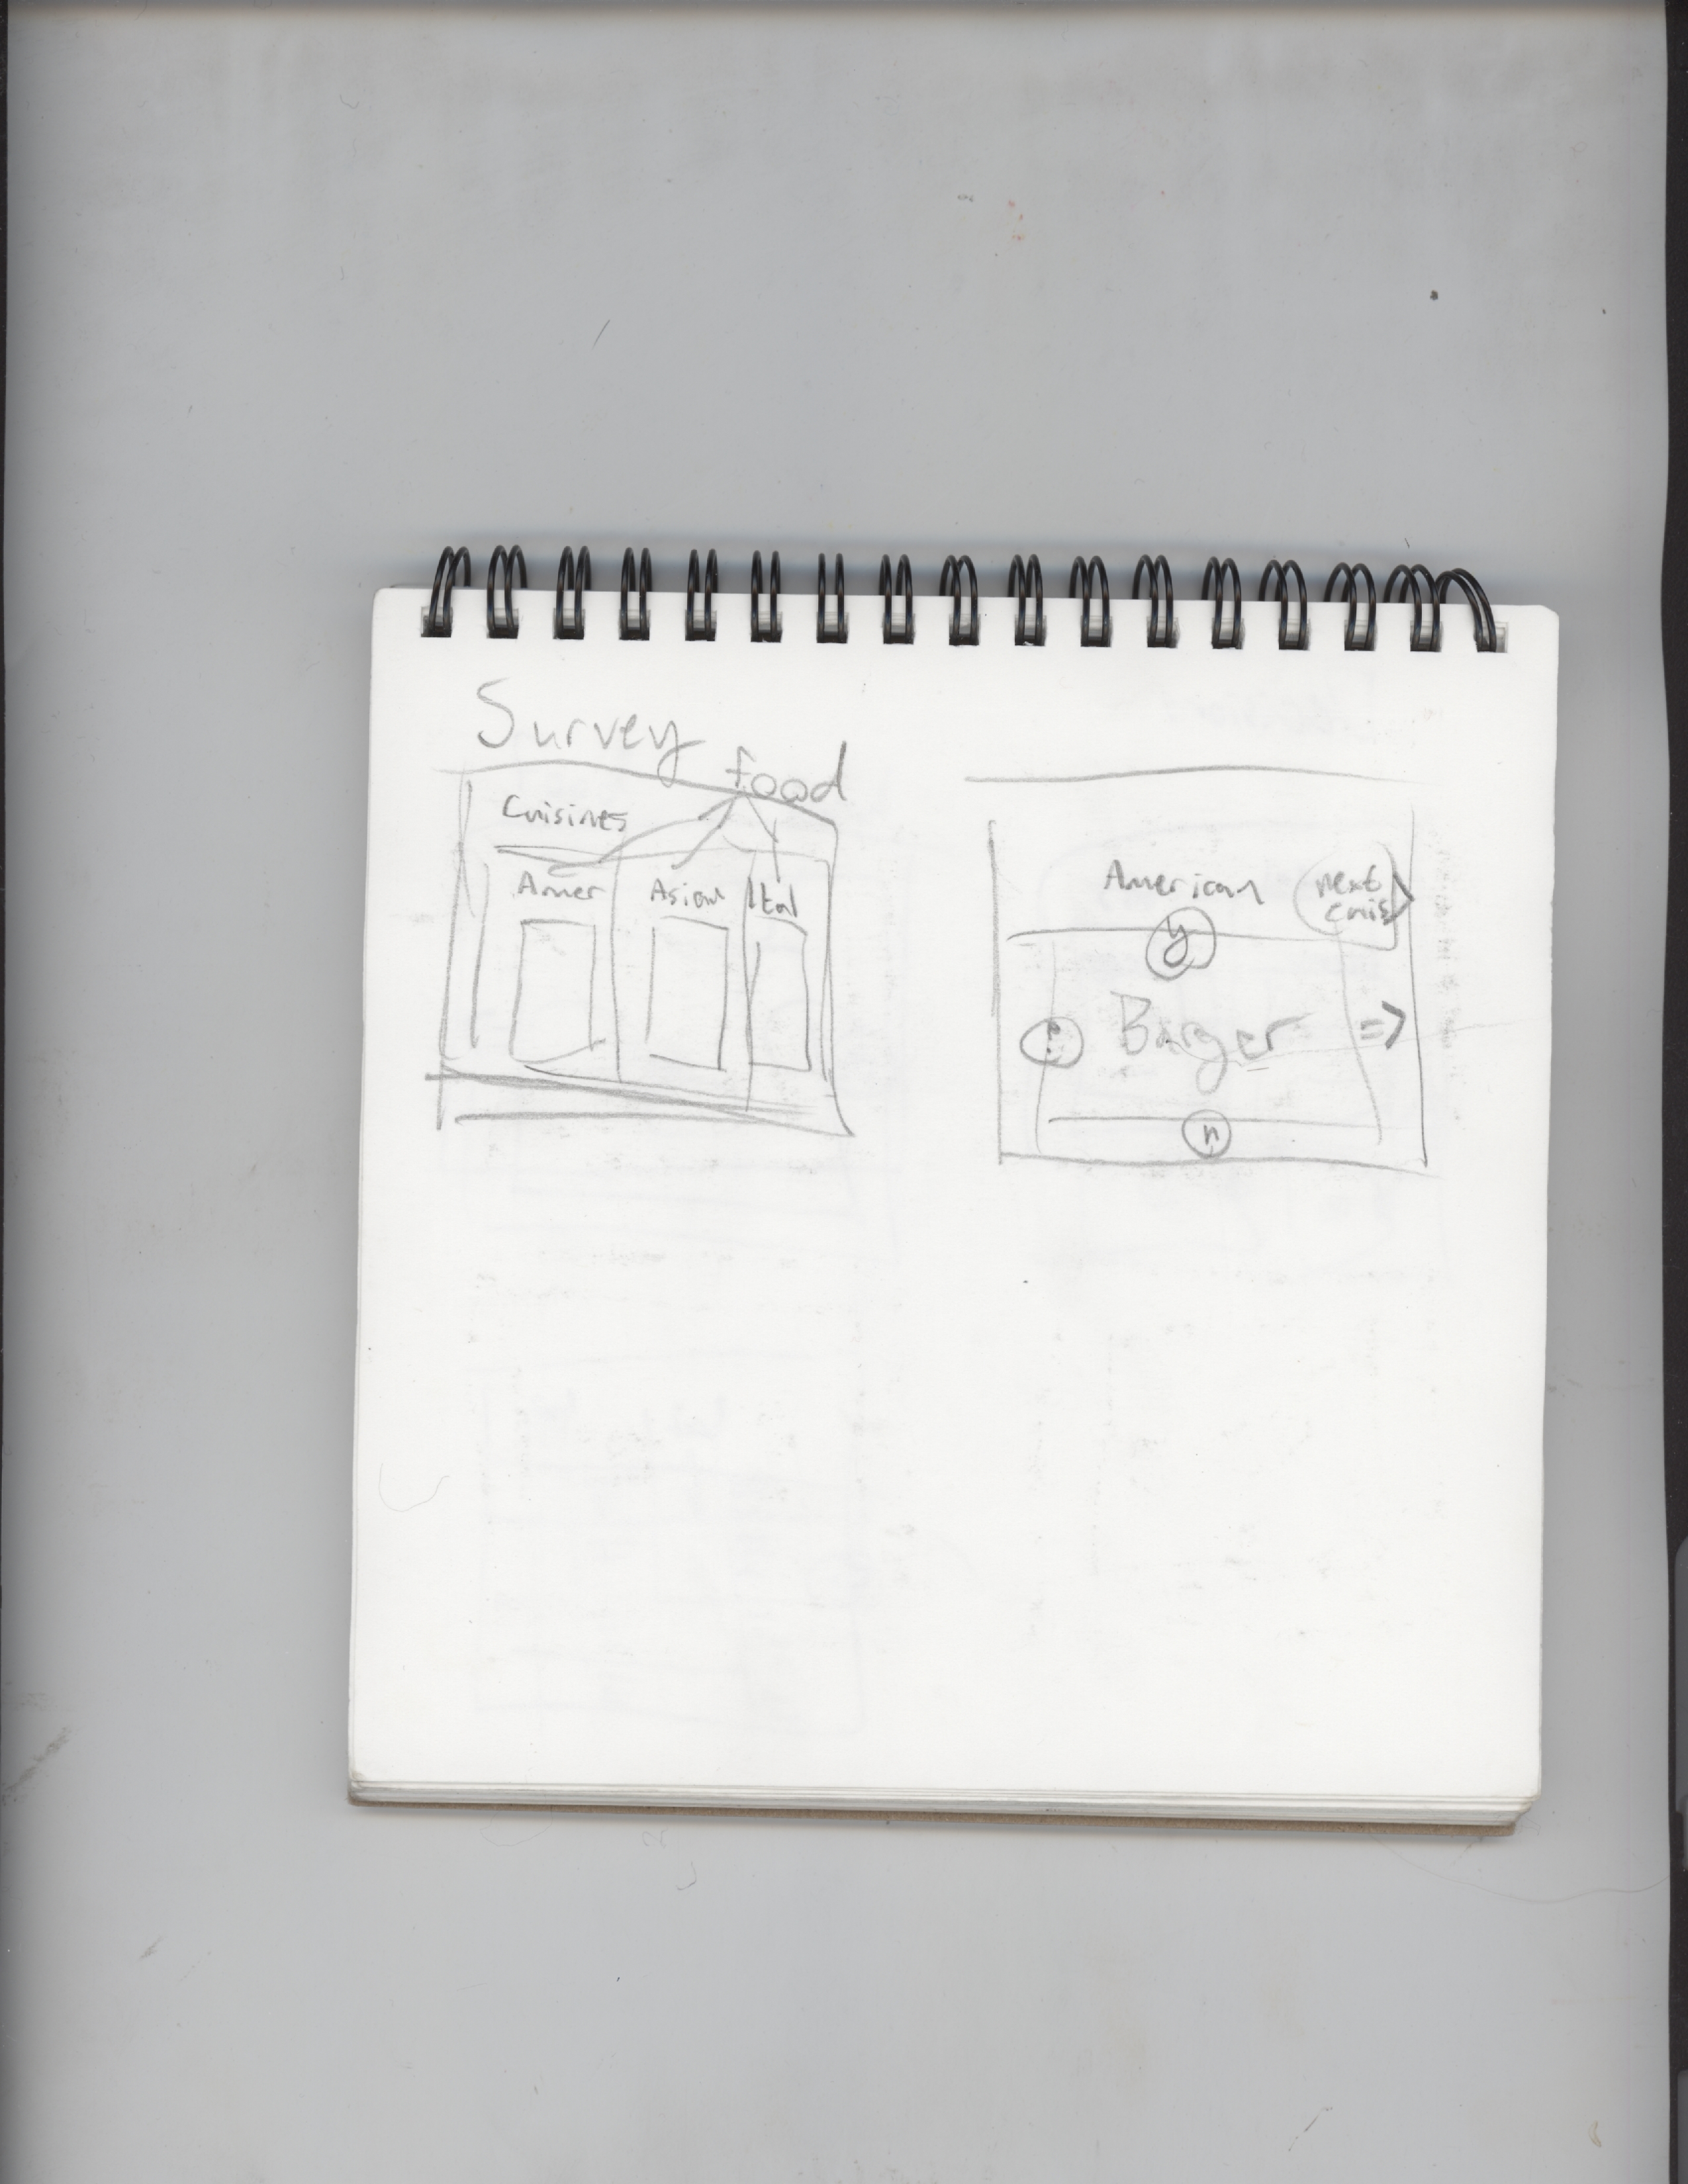 Survey
food
Cuisines
Amer Asian Ital
American
next
cuis
y
? Burger =>
n